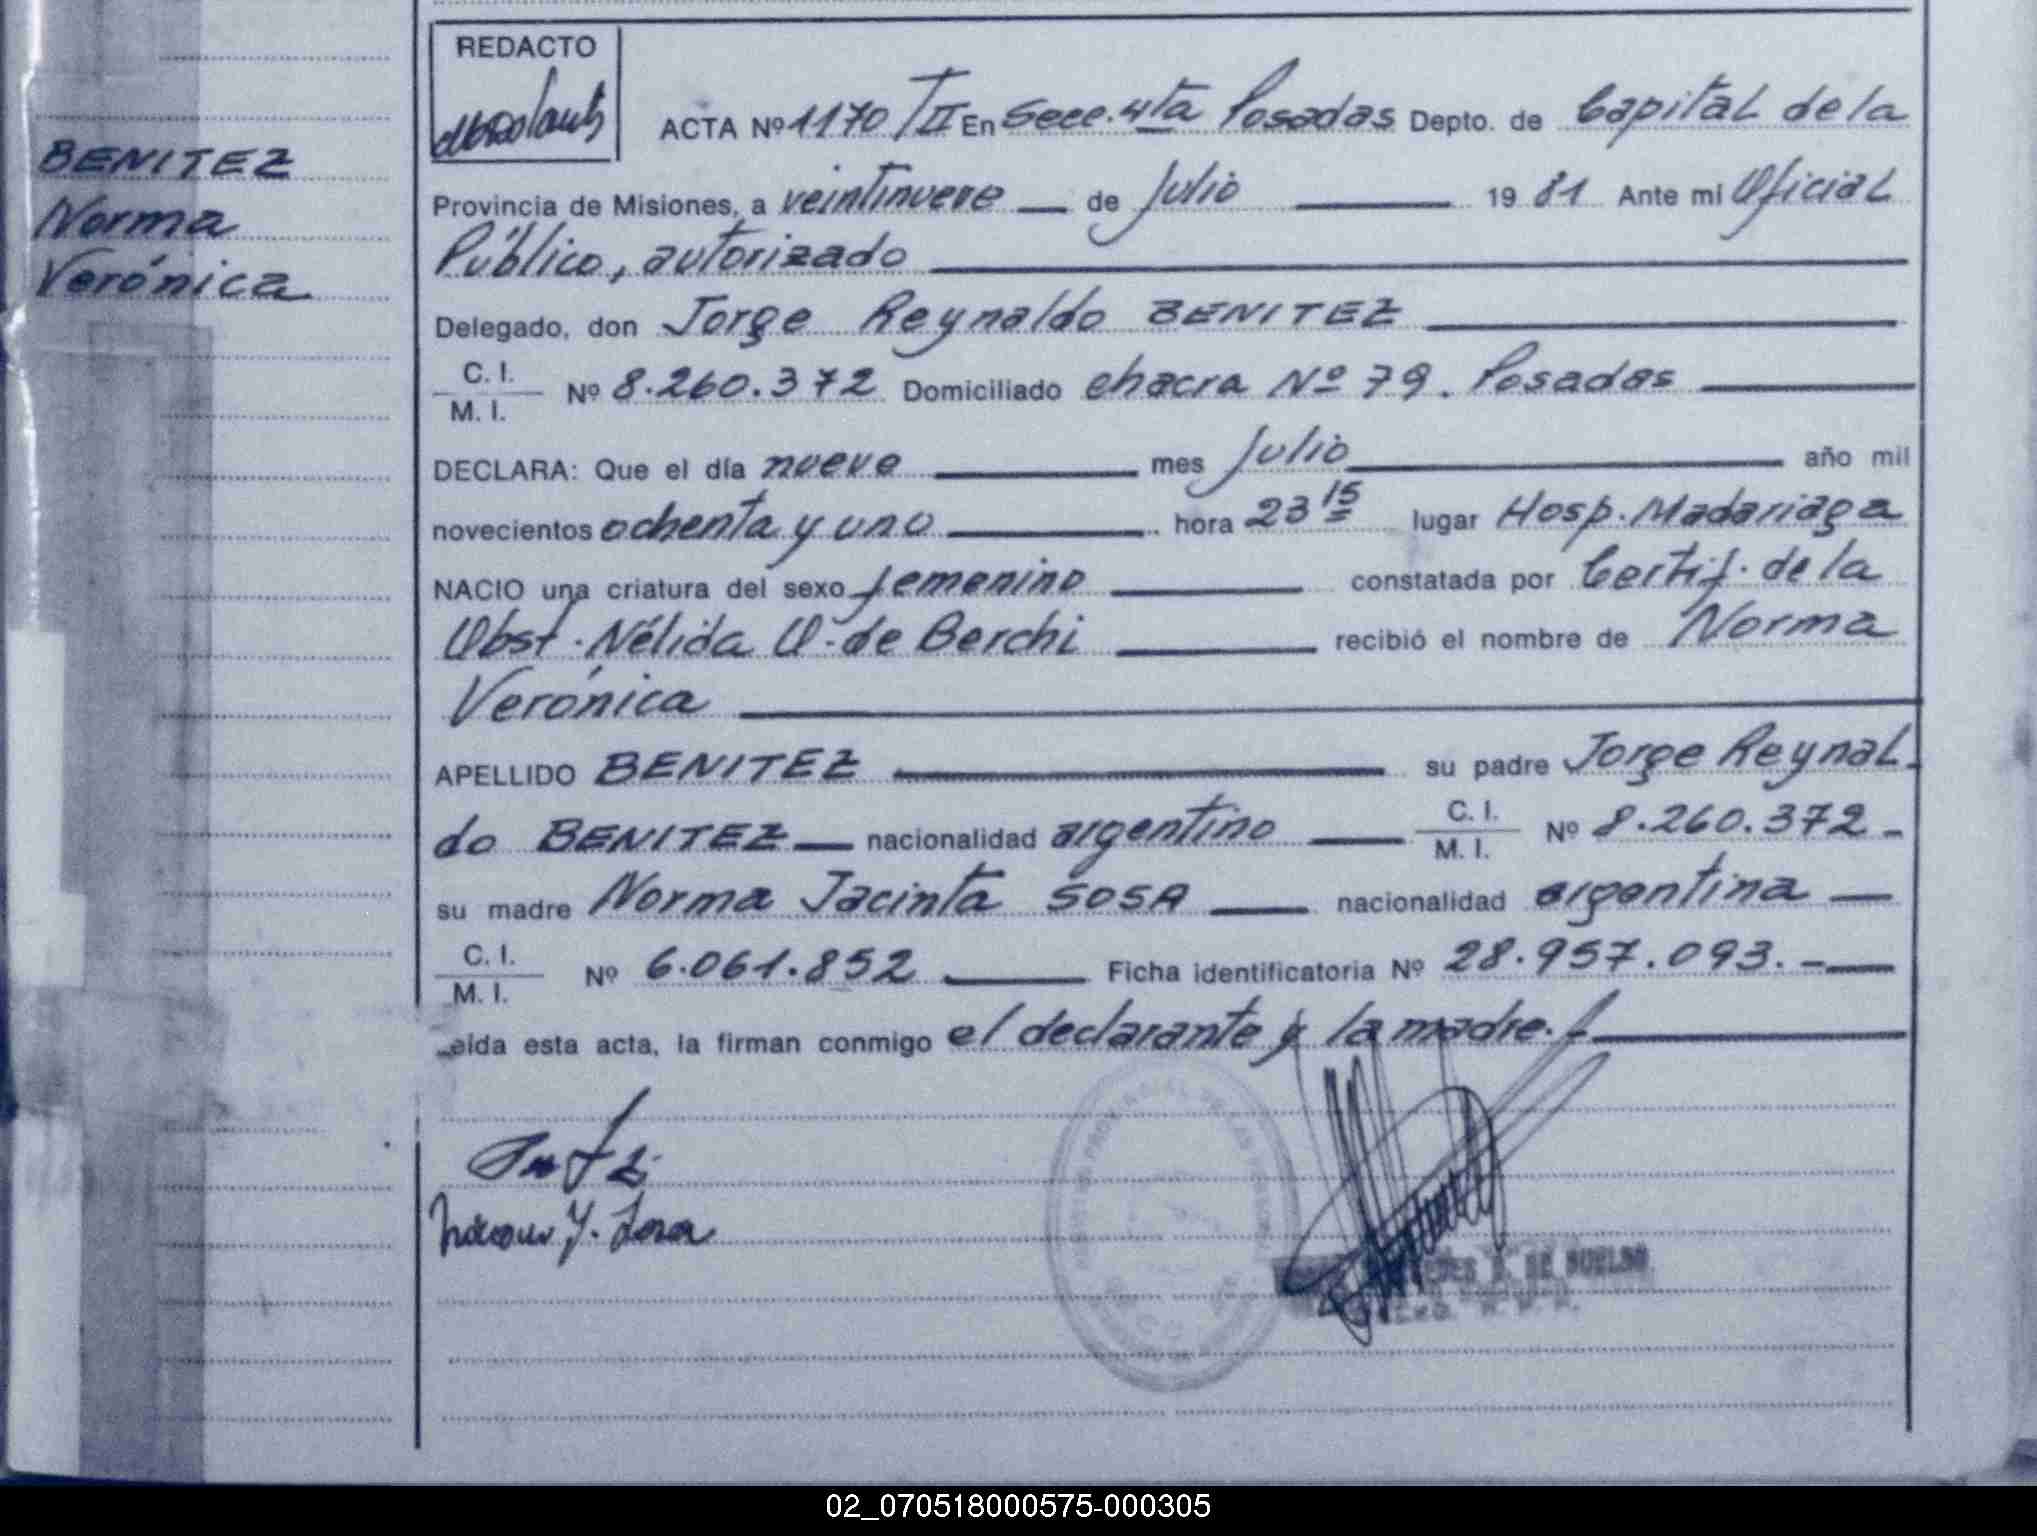 BENITEZ
Norma
Verónica
REDACTO
ACTA Nº 1170/TII En Secc. 4ta Posadas Depto. de Capital de la
Provincia de Misiones, a veintinueve de Julio 1981 Ante mi Oficial
Público, autorizado
Delegado, don Jorge Reynaldo BENITEZ
C. I.
M. I. Nº 8.260.372 Domiciliado chacra Nº 79. Posadas
DECLARA: Que el día nueve mes Julio año mil
novecientos ochenta y uno hora 23 15 lugar Hosp. Madariaga
NACIO una criatura del sexo femenino constatada por Certif. de la
Obst. Nélida O. de Berchi recibió el nombre de Norma
Verónica
APELLIDO BENITEZ su padre Jorge Reynal-
do BENITEZ nacionalidad argentino C. I.
M. I. Nº 8.260.372-
su madre Norma Jacinta SOSA nacionalidad argentina
C. I.
M. I. Nº 6.061.852 Ficha identificatoria Nº 28.957.093.-
eída esta acta, la firman conmigo el declarante y la madre.-
DE
02_070518000575-000305